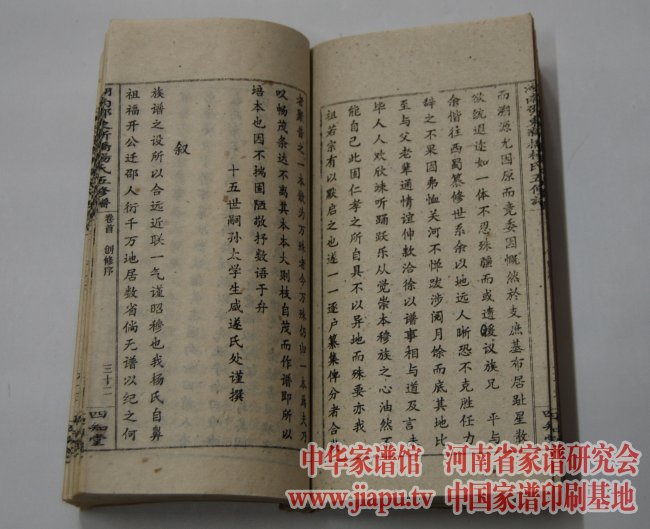 而溯源尤因原而竟委因慨然於支庶基布居趾星散
欲统退迩如一体不忍殊疆而或遗暖议族兄　平与
余偕往西蜀纂修世系余以地远人晰恐不克胜任力
辞之不果因弗恤关河不惮跋涉阅月馀而底其地比
至与父老辈通情谊伸款洽徐以谱事相与道及言未
毕人人欢欣竦听踊跃乐从觉崇本穆族之心油然不
能自己此固仁孝之所自具不以异地而殊要亦我
祖若宗有以默启之也遂一一逐户纂集俾分者合
老联昔之一本散为万殊者今万殊仍归一本焉夫乃
叹畅茂条达不离其本本大则枝自茂而作谱即所以
培本也因不揣固陋敬抒数语于弁
十五世嗣孙太学生威遂氏处谨撰
叙
族谱之设所以合远近联一气谨昭穆也我杨氏自鼻
祖福开公迁邵人衍千万地居数省倘无谱以纪之何
杨氏五修谱
卷首　创修序
三十二
四知堂
四知堂
中华家谱馆　河南省家谱研究会
www.jiapu.tv　中国家谱印刷基地